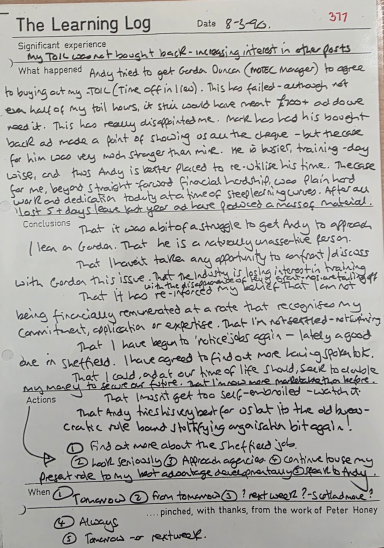 377
The Learning Log Date 8-3-90.
Significant experience
My TOIL was not bought back - increasing interest in other posts
What happened Andy tried to get Gordon Duncan (MOTEC Manager) to agree
to buying out my TOIL (Time off in lieu). This has failed - although not
even half of my toil hours, it still would have meant £200+ and do we
need it. This has really disappointed me. Mark has had his bought
back and made a point of showing us all the cheque - but the case
for him was very much stronger than mine. He is busier, training-day
wise, and thus Andy is better placed to re-utilise his time. The case
for me, beyond straight forward financial hardship, was plain hard
work and dedication to duty at a time of steep learning curves. After all
I lost 5+ days leave last year and have produced a mass of material.
Conclusions That it was a bit of a struggle to get Andy to approach
/ lean on Gordon. That he is a naturally unassertive person.
That I haven't taken any opportunity to confront / discuss
with Gordon this issue. That the Industry is losing interest in training
with the disappearance of
That it has re-inforced my belief that I am not
being financially remunerated at a rate that recognises my
commitment, application or expertise. That I'm not settled
That I have begun to 'notice' jobs again - lately a good
one in Sheffield. I have agreed to find out more having spoken to
That I could, and at our time of life should, seek to double
my money to secure our future. That I'm now more marketable than before.
That I must not get too self-embroiled - watch it.
Actions
That Andy tries his very best for us but its the old bureau-
cratic rule bound stultifying organisation bit again!
① Find out more about the Sheffield job
② Look seriously ③ Approach agencies ④ Continue to use my
present role to my best advantage developmentally ⑤ Speak to Andy
When ① Tomorrow ② From tomorrow ③ ? next week? - Scotland move?
....pinched, with thanks, from the work of Peter Honey
④ Always
⑤ Tomorrow - or next week.